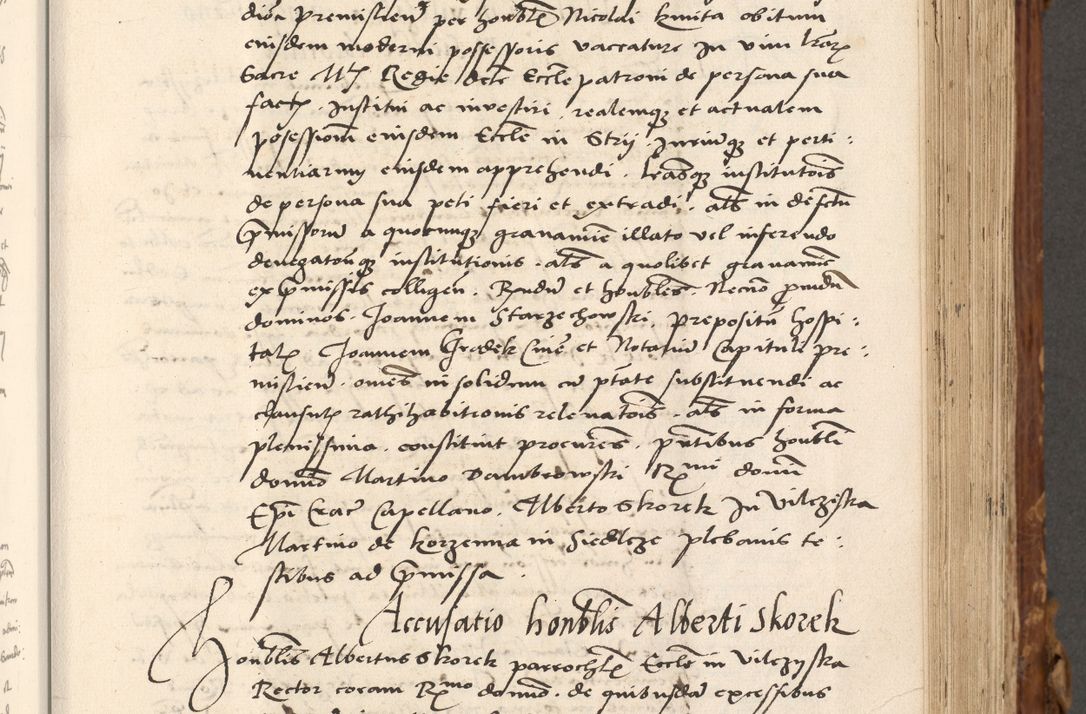 dioc Premislien per honbl Nicolai Kmita obitum
eiusdem moderni possessoris vaccature In vim lrar
Sacre Mtis Regie dcte Eccle patroni de persona sua
fact. Institui ac investiri, realemqz et actualem
possessionem eiusdem Eccle in Strij Juriumqz et perti:
nentiarum eiusdem apprehendi. lrasqz institutois
de persona sua peti fieri et extradi, als in defctu
Pmissorum a quocunqz gravamie illato vel inferendo
denegatonisqz institutionis. als a quolibet gravamie
ex Pmissis colligen. Rndum et honbles. Necno pvidu
dominos. Joannem Starzechowski, prepositu hospi:
tal Joannem Grodek Cive et Notarium Capituli pre:
mislien. omes in solidum cu ptate substituendi ac
clausul rathihabitionis relevatois. als in forma
plenissima. constituit procures. pntibus honbli
domno Martino Dambrowski Rmi domi
Epi Crac Capellano. Alberto Skorek In Vilczyska
Martino de Korzenna in Siedlcze plebanis te:
stibus ad Pmissa.
Accusatio honblis Alberti Skorek
Honblis Albertus Skorek parrochl Eccle in Vilczyska
Rector coram Rmo domno. de quibusda excessibus